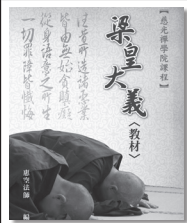 【慈光禪學院課程】
梁皇大義
〈教材〉
往昔所造諸惡業
皆由無始貪瞋癡
從身語意之所生
一切我今皆懺悔
惠空法師 編